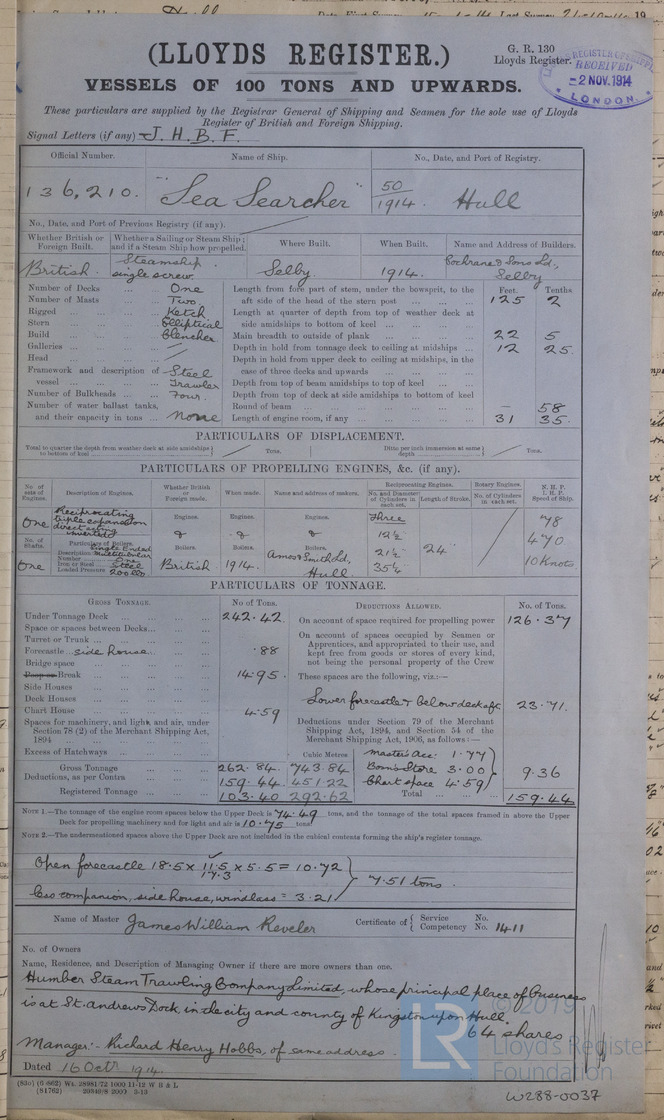 (LLOYDS REGISTER.)
G. R. 130
Lloyds Register.
REGISTER OF
RECEIVED
2 NOV. 1914
LONDON.
VESSELS OF 100 TONS AND UPWARDS.
These particulars are supplied by the Registrar General of Shipping and Seamen for the sole use of Lloyds
Register of British and Foreign Shipping.
Signal Letters (if any) J. H. B. F.
Official Number. Name of Ship. No., Date, and Port of Registry.
136,210. "Sea Searcher" 50/1914. Hull
No., Date, and Port of Previous Registry (if any).
Whether British or Foreign Built. Whether a Sailing or Steam Ship; and if a Steam Ship how propelled. Where Built. When Built. Name and Address of Builders.
British. Steamship single screw. Selby. 1914. Cochrane & Sons Ld., Selby
Number of Decks One Length from fore part of stem, under the bowsprit, to the aft side of the head of the stern post Feet. Tenths 125 2
Number of Masts Two.
Rigged Ketch Length at quarter of depth from top of weather deck at side amidships to bottom of keel
Stern Elliptical
Build Clencher Main breadth to outside of plank 22 5
Galleries Depth in hold from tonnage deck to ceiling at midships 12 25.
Head Depth in hold from upper deck to ceiling at midships, in the case of three decks and upwards
Framework and description of vessel Steel Trawler Depth from top of beam amidships to top of keel
Number of Bulkheads Four. Depth from top of deck at side amidships to bottom of keel
Number of water ballast tanks, and their capacity in tons None Round of beam 58
Length of engine room, if any 31 35.
PARTICULARS OF DISPLACEMENT.
Total to quarter the depth from weather deck at side amidships to bottom of keel Tons. Ditto per inch immersion at same depth Tons.
PARTICULARS OF PROPELLING ENGINES, &c. (if any).
No. of sets of Engines. Description of Engines. Whether British or Foreign made. When made. Name and address of makers. Reciprocating Engines. No. and Diameter of Cylinders in each set. Length of Stroke. Rotary Engines. No. of Cylinders in each set. N. H. P. I. H. P. Speed of Ship.
One Reciprocating triple expansion direct acting inverted Engines. & Engines. & Engines. Three 12½ 21½ 35½ 24" 78 470 10 Knots
No. of Shafts. Particulars of Boilers.
One Description Single Ended Multitubular
Number One
Iron or Steel Steel
Loaded Pressure 200 lbs.
Boilers. British Boilers. 1914. Boilers. Amos & Smith Ld., Hull.
PARTICULARS OF TONNAGE.
GROSS TONNAGE. No of Tons. DEDUCTIONS ALLOWED. No. of Tons.
Under Tonnage Deck 242.42. On account of space required for propelling power 126.37
Space or spaces between Decks
Turret or Trunk
Forecastle side house .88
Bridge space
Poop or Break 14.95.
Side Houses
Deck Houses
Chart House 4.59
On account of spaces occupied by Seamen or Apprentices, and appropriated to their use, and kept free from goods or stores of every kind, not being the personal property of the Crew
These spaces are the following, viz:—
Lower forecastle & below deck aft 23.71.
Spaces for machinery, and light, and air, under Section 78 (2) of the Merchant Shipping Act, 1894
Deductions under Section 79 of the Merchant Shipping Act, 1894, and Section 54 of the Merchant Shipping Act, 1906, as follows:—
Excess of Hatchways
Cubic Metres
Gross Tonnage 262.84. 743.84
Deductions, as per Contra 159.44. 451.22
Registered Tonnage 103.40 292.62
Master's Acc: 1.77
Bosn's Store 3.00
Chart space 4.59
9.36
Total 159.44
NOTE 1.—The tonnage of the engine room spaces below the Upper Deck is 74.49 tons, and the tonnage of the total spaces framed in above the Upper
Deck for propelling machinery and for light and air is 10.75 tons
NOTE 2.—The undermentioned spaces above the Upper Deck are not included in the cubical contents forming the ship's register tonnage.
Open forecastle 18.5 x 11.5 x 5.5 = 10.72
17.3
less companion, side house, windlass = 3.21
7.51 tons.
Name of Master James William Reveler Certificate of Service No. Competency No. 1411
No. of Owners
Name, Residence, and Description of Managing Owner if there are more owners than one.
Humber Steam Trawling Company Limited, whose principal place of business
is at St. Andrews Dock, in the city and county of Kingston upon Hull.
64 shares
Manager:- Richard Henry Hobbs, of same address.
Dated 16 Octr. 1914.
© 2019
LR
Lloyd's Register
Foundation
W288-0037